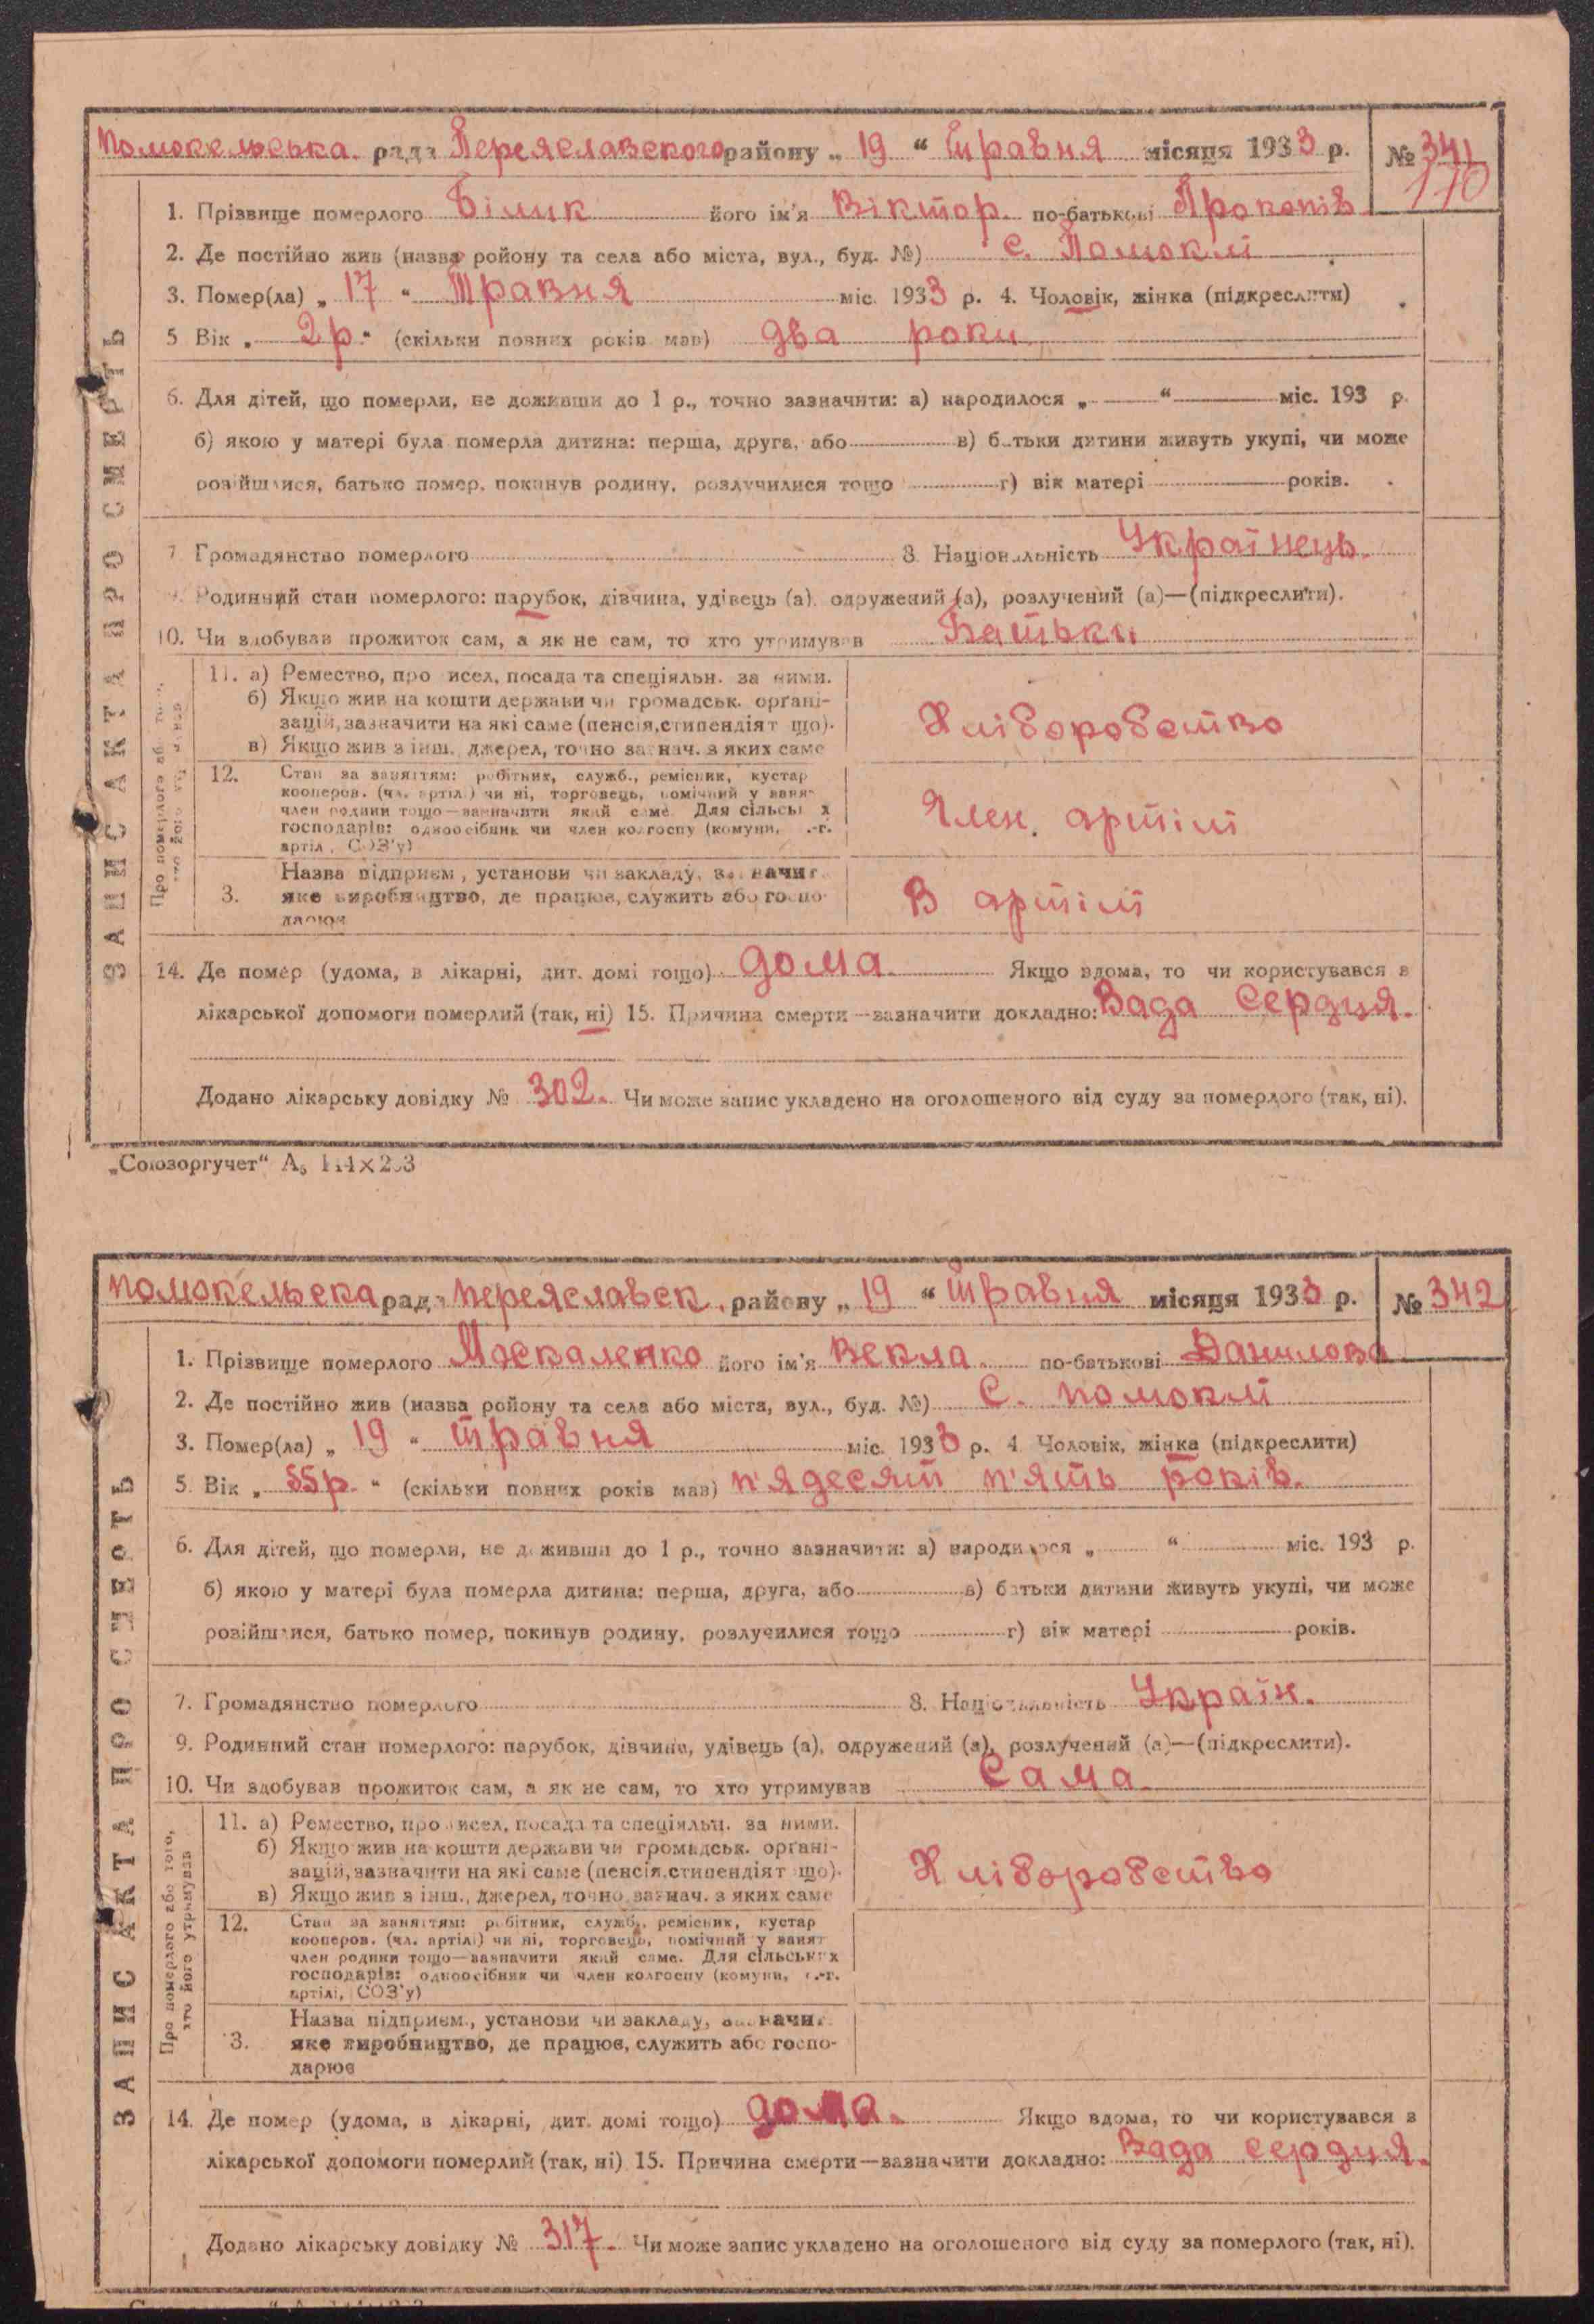 Помокельська рада Переяславского району „ 19 “ Травня місяця 1933 р. № 341
110
1. Прізвище померлого Білик його ім'я Віктор. по-батькові Прокопів
2. Де постійно жив (назва ройону та села або міста, вул., буд. №) с. Помоклі
3. Помер(ла) „ 17 “ Травня міс. 1933 р. 4. Чоловік, жінка (підкреслити)
5 Вік „ 2 р. “ (скільки повних років мав) два роки
6. Для дітей, що померли, не доживши до 1 р., точно зазначити: а) народилося „ “ міс. 193 р.
б) якою у матері була померла дитина: перша, друга, або в) батьки дитини живуть укупі, чи може
розійшлися, батько помер, покинув родину, розлучилися тощо г) вік матері років.
7. Громадянство померлого 8. Національність Українець.
9. Родинний стан померлого: парубок, дівчина, удівець (а), одружений (а), розлучений (а)—(підкреслити).
10. Чи здобував прожиток сам, а як не сам, то хто утримував Батьки
ЗАПИС АКТА ПРО СМЕРТЬ
11. а) Ремество, про исел, посада та спеціяльн. за ними.
б) Якщо жив на кошти держави чи громадськ. органі-
зацій, зазначити на які саме (пенсія, стипендіят що).
в) Якщо жив з інш., джерел, точно зазнач. з яких саме
Хліборобство
12. Стан за заняттям: робітник, служб., ремісник, кустар
кооперов. (чл. артілі) чи ні, торговець, помічний у занят
член родини тощо—зазначити який саме. Для сільських
господарів: одноосібник чи член колгоспу (комуни, с.-г.
артілі, СОЗ'у)
Член. артілі
Назва підприєм., установи чи закладу, зазначит.
3. яке виробництво, де працює, служить або госпо-
дарює
В артілі
14. Де помер (удома, в лікарні, дит. домі тощо) дома. Якщо вдома, то чи користувався з
лікарської допомоги померлий (так, ні) 15. Причина смерти—зазначити докладно: Вада Сердця.
Додано лікарську довідку № 302. Чи може запис укладено на оголошеного від суду за померлого (так, ні).
„Союзоргучет“ А₅
Помокельска рада Переяславск. району „ 19 “ Травня місяця 1933 р. № 342
1. Прізвище померлого Москаленко його ім'я Векла. по-батькові Данилова
2. Де постійно жив (назва ройону та села або міста, вул., буд. №) С. Помоклі
3. Помер(ла) „ 19 “ Травня міс. 1933 р. 4. Чоловік, жінка (підкреслити)
5. Вік „ 55 р. “ (скільки повних років мав) п'ядесят п'ять років.
6. Для дітей, що померли, не доживши до 1 р., точно зазначити: а) народилося „ “ міс. 193 р.
б) якою у матері була померла дитина: перша, друга, або в) батьки дитини живуть укупі, чи може
розійшлися, батько помер, покинув родину, розлучилися тощо г) вік матері років.
7. Громадянство померлого 8. Національність Україн.
9. Родинний стан померлого: парубок, дівчина, удівець (а), одружений (а), розлучений (а)—(підкреслити).
10. Чи здобував прожиток сам, а як не сам, то хто утримував Сама.
ЗАПИС АКТА ПРО СМЕРТЬ
Про померлого або того,
хто його утримував
11. а) Ремество, про исел, посада та спеціяльн. за ними.
б) Якщо жив на кошти держави чи громадськ. органі-
зацій, зазначити на які саме (пенсія, стипендіят що).
в) Якщо жив з інш., джерел, точно зазнач. з яких саме
Хліборобство
12. Стан за заняттям: робітник, служб., ремісник, кустар
кооперов. (чл. артілі) чи ні, торговець, помічний у занят
член родини тощо—зазначити який саме. Для сільських
господарів: одноосібник чи член колгоспу (комуни, с.-г.
артілі, СОЗ'у)
Назва підприєм., установи чи закладу, зазначит.
3. яке виробництво, де працює, служить або госпо-
дарює
14. Де помер (удома, в лікарні, дит. домі тощо) дома. Якщо вдома, то чи користувався з
лікарської допомоги померлий (так, ні) 15. Причина смерти—зазначити докладно: Вада сердця.
Додано лікарську довідку № 317. Чи може запис укладено на оголошеного від суду за померлого (так, ні).